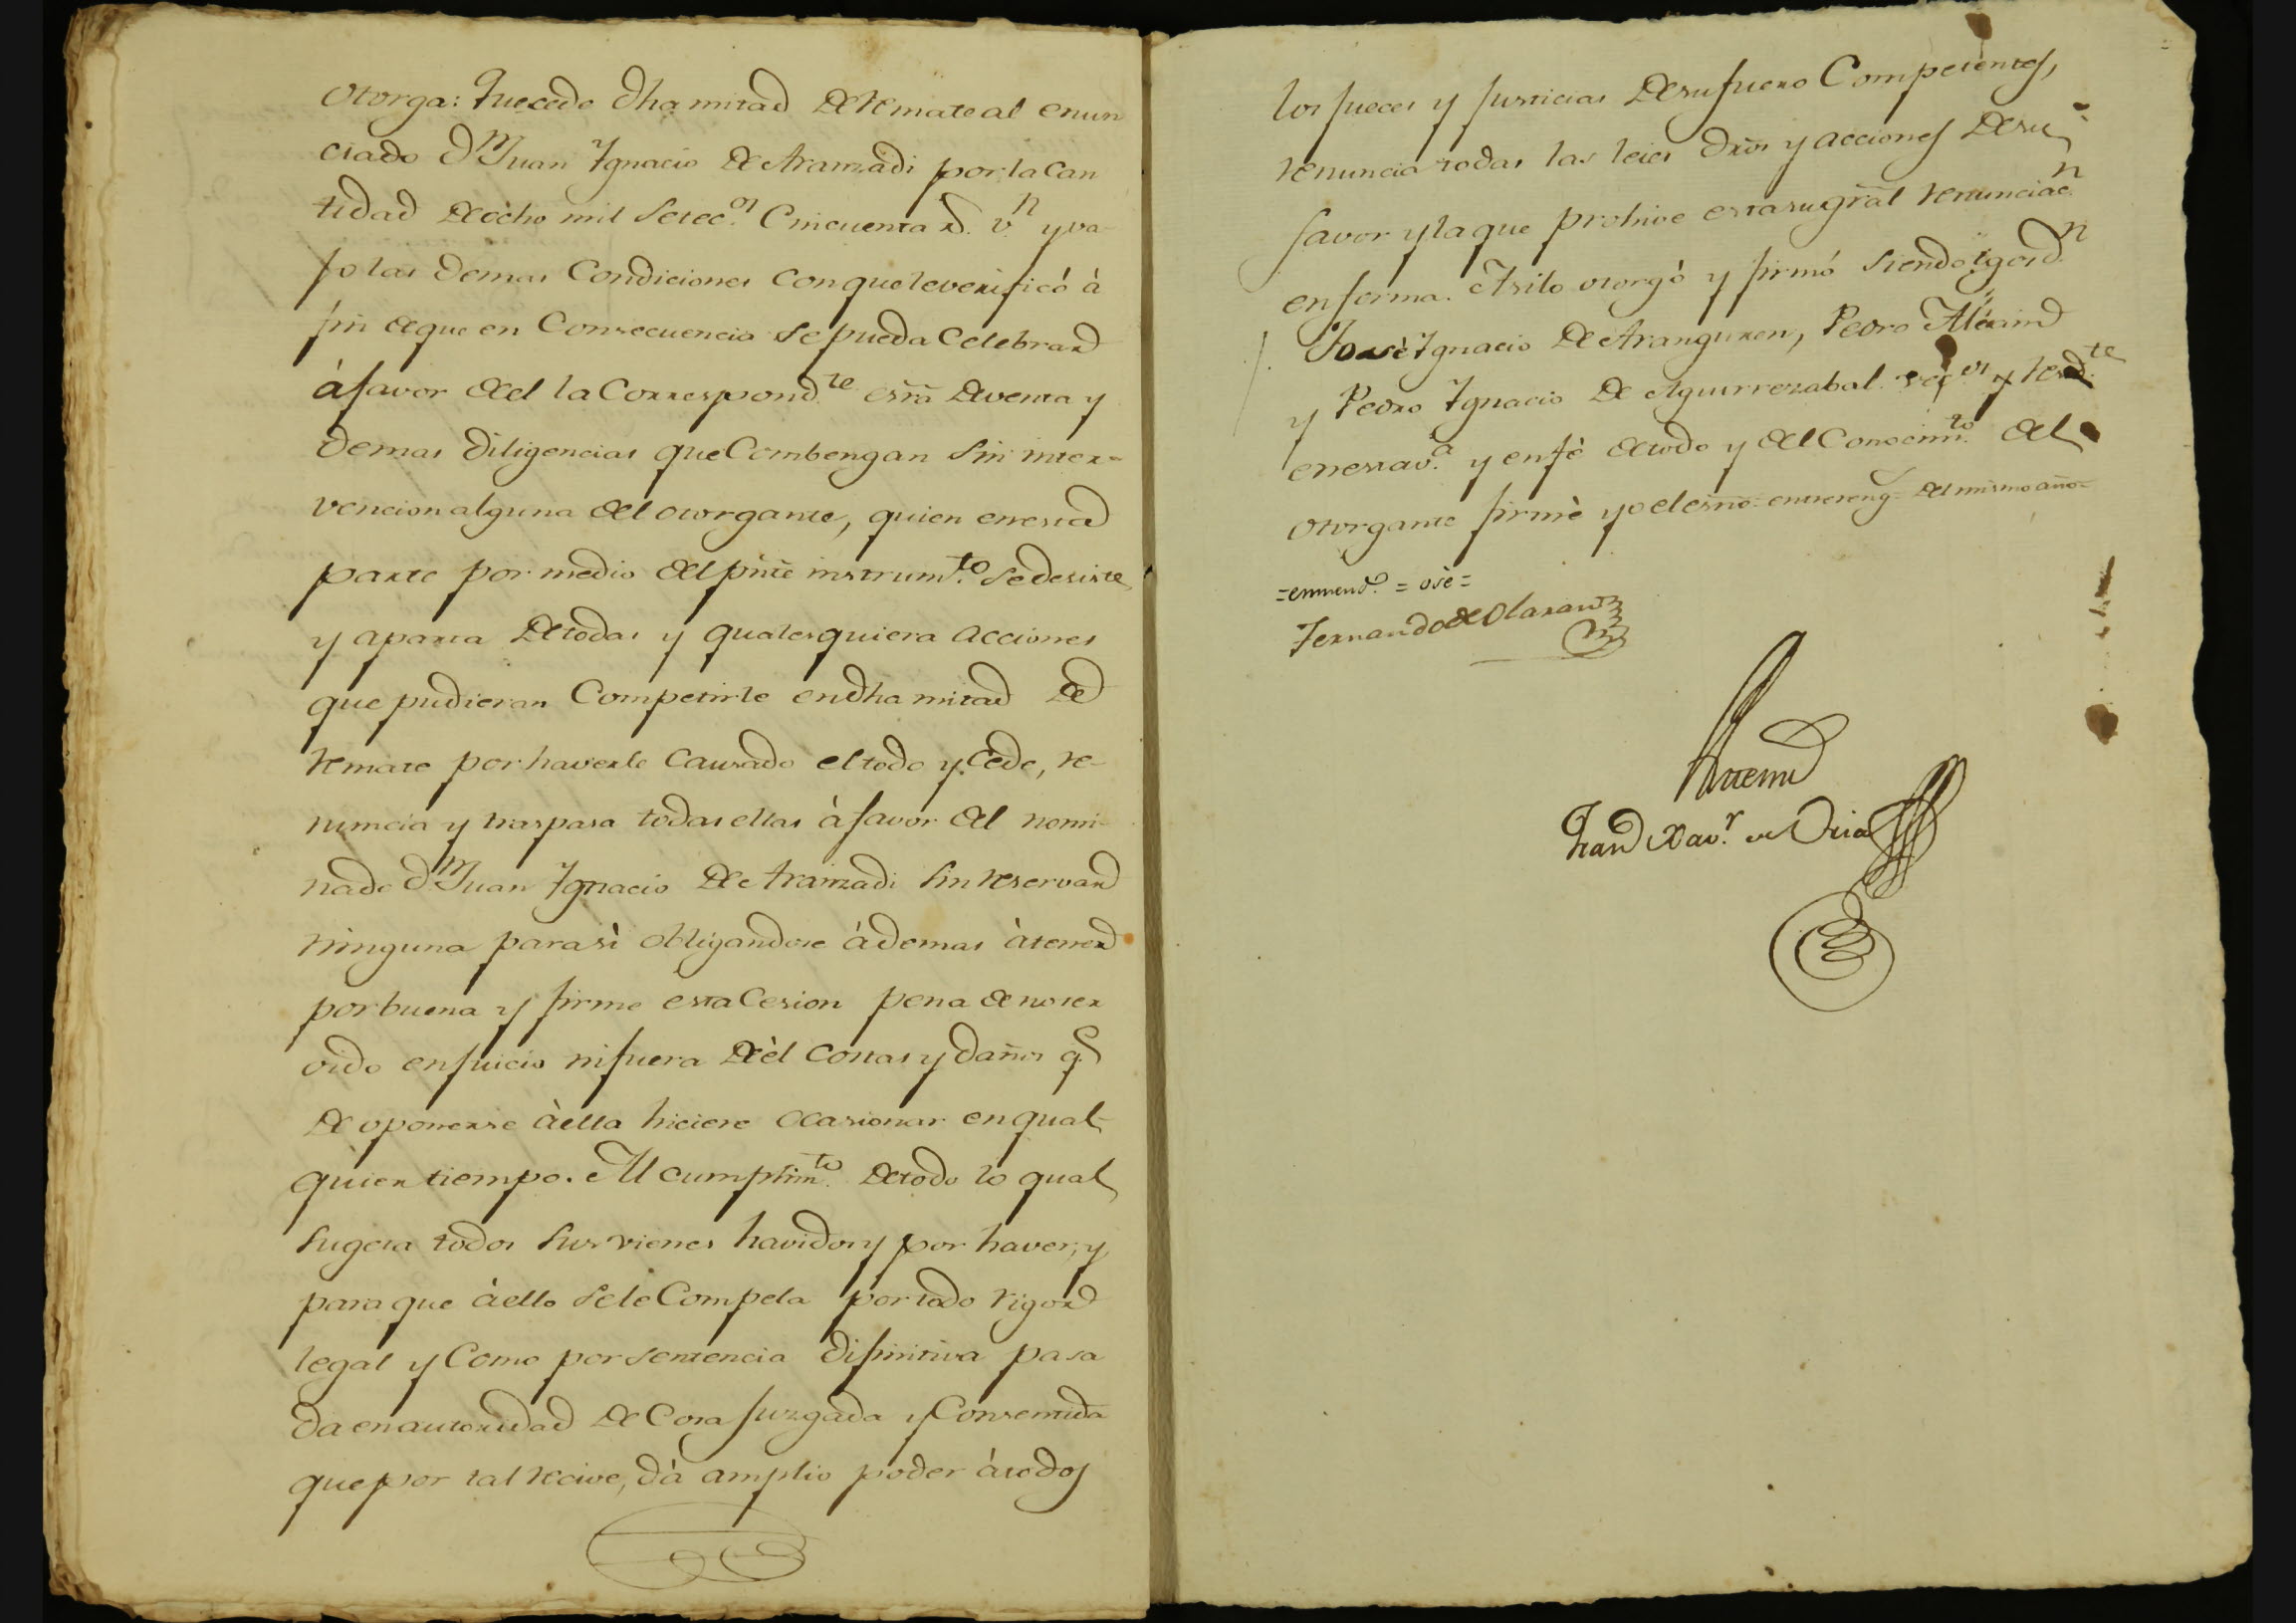 otorga: Que cede dha mitad de remate al enun
ciado Dn Juan Ygnacio de Aramzadi por la can
tidad de ocho mil setecos cincuenta rs. vn y va-
jo las demas condiciones con que le verificó à
fin de que en consecuencia se pueda celebrar
à favor de el la correspondte esrã de venta y
demas diligencias que combengan sin inter=
vencion alguna del otorgante, quien en esta
parte por medio del pñte instrumto se desiste
y aparta de todas y qualesquiera acciones
que pudieran competirle en dha mitad de
remate por haverle causado el todo y cede, re-
nuncia y traspasa todas ellas à favor del nomi-
nado Dn Juan Ygnacio de Aramzadi sin reservar
ninguna para sì obligandose àdemas à tener
por buena y firme esta cesion pena de no ser
oido en juicio ni fuera de èl costas y daños q.e
de oponerse à ella hiciere ocasionar en qual-
quier tiempo. Al cumplimto de todo lo qual
sugeta todos sus vienes havidos y por haver, y
para que à ello se le compela por todo rigor
legal y como por sentencia difinitiva pasa
da en autoridad de cosa juzgada y consentida
que por tal recive, dà amplio poder à todos
los jueces y justicias de su fuero competentes,
renuncia todas las leies dr̃os y acciones de su
favor y la que prohive esta su gr̃al renunciacn
en forma. Asi lo otorgò y firmó siendo tgos Dn
Josè Ygnacio de Aranguren, Pedro
y Pedro Ygnacio de Aguirrezabal vecos y residte
en esta va y en fè de todo y del conocimto del
otorgante firmè yo el esño = entrereng = del mismo año =
= enmendo = osè =
Fernando de Olaran
Antemi
Franco Xavr de Oria